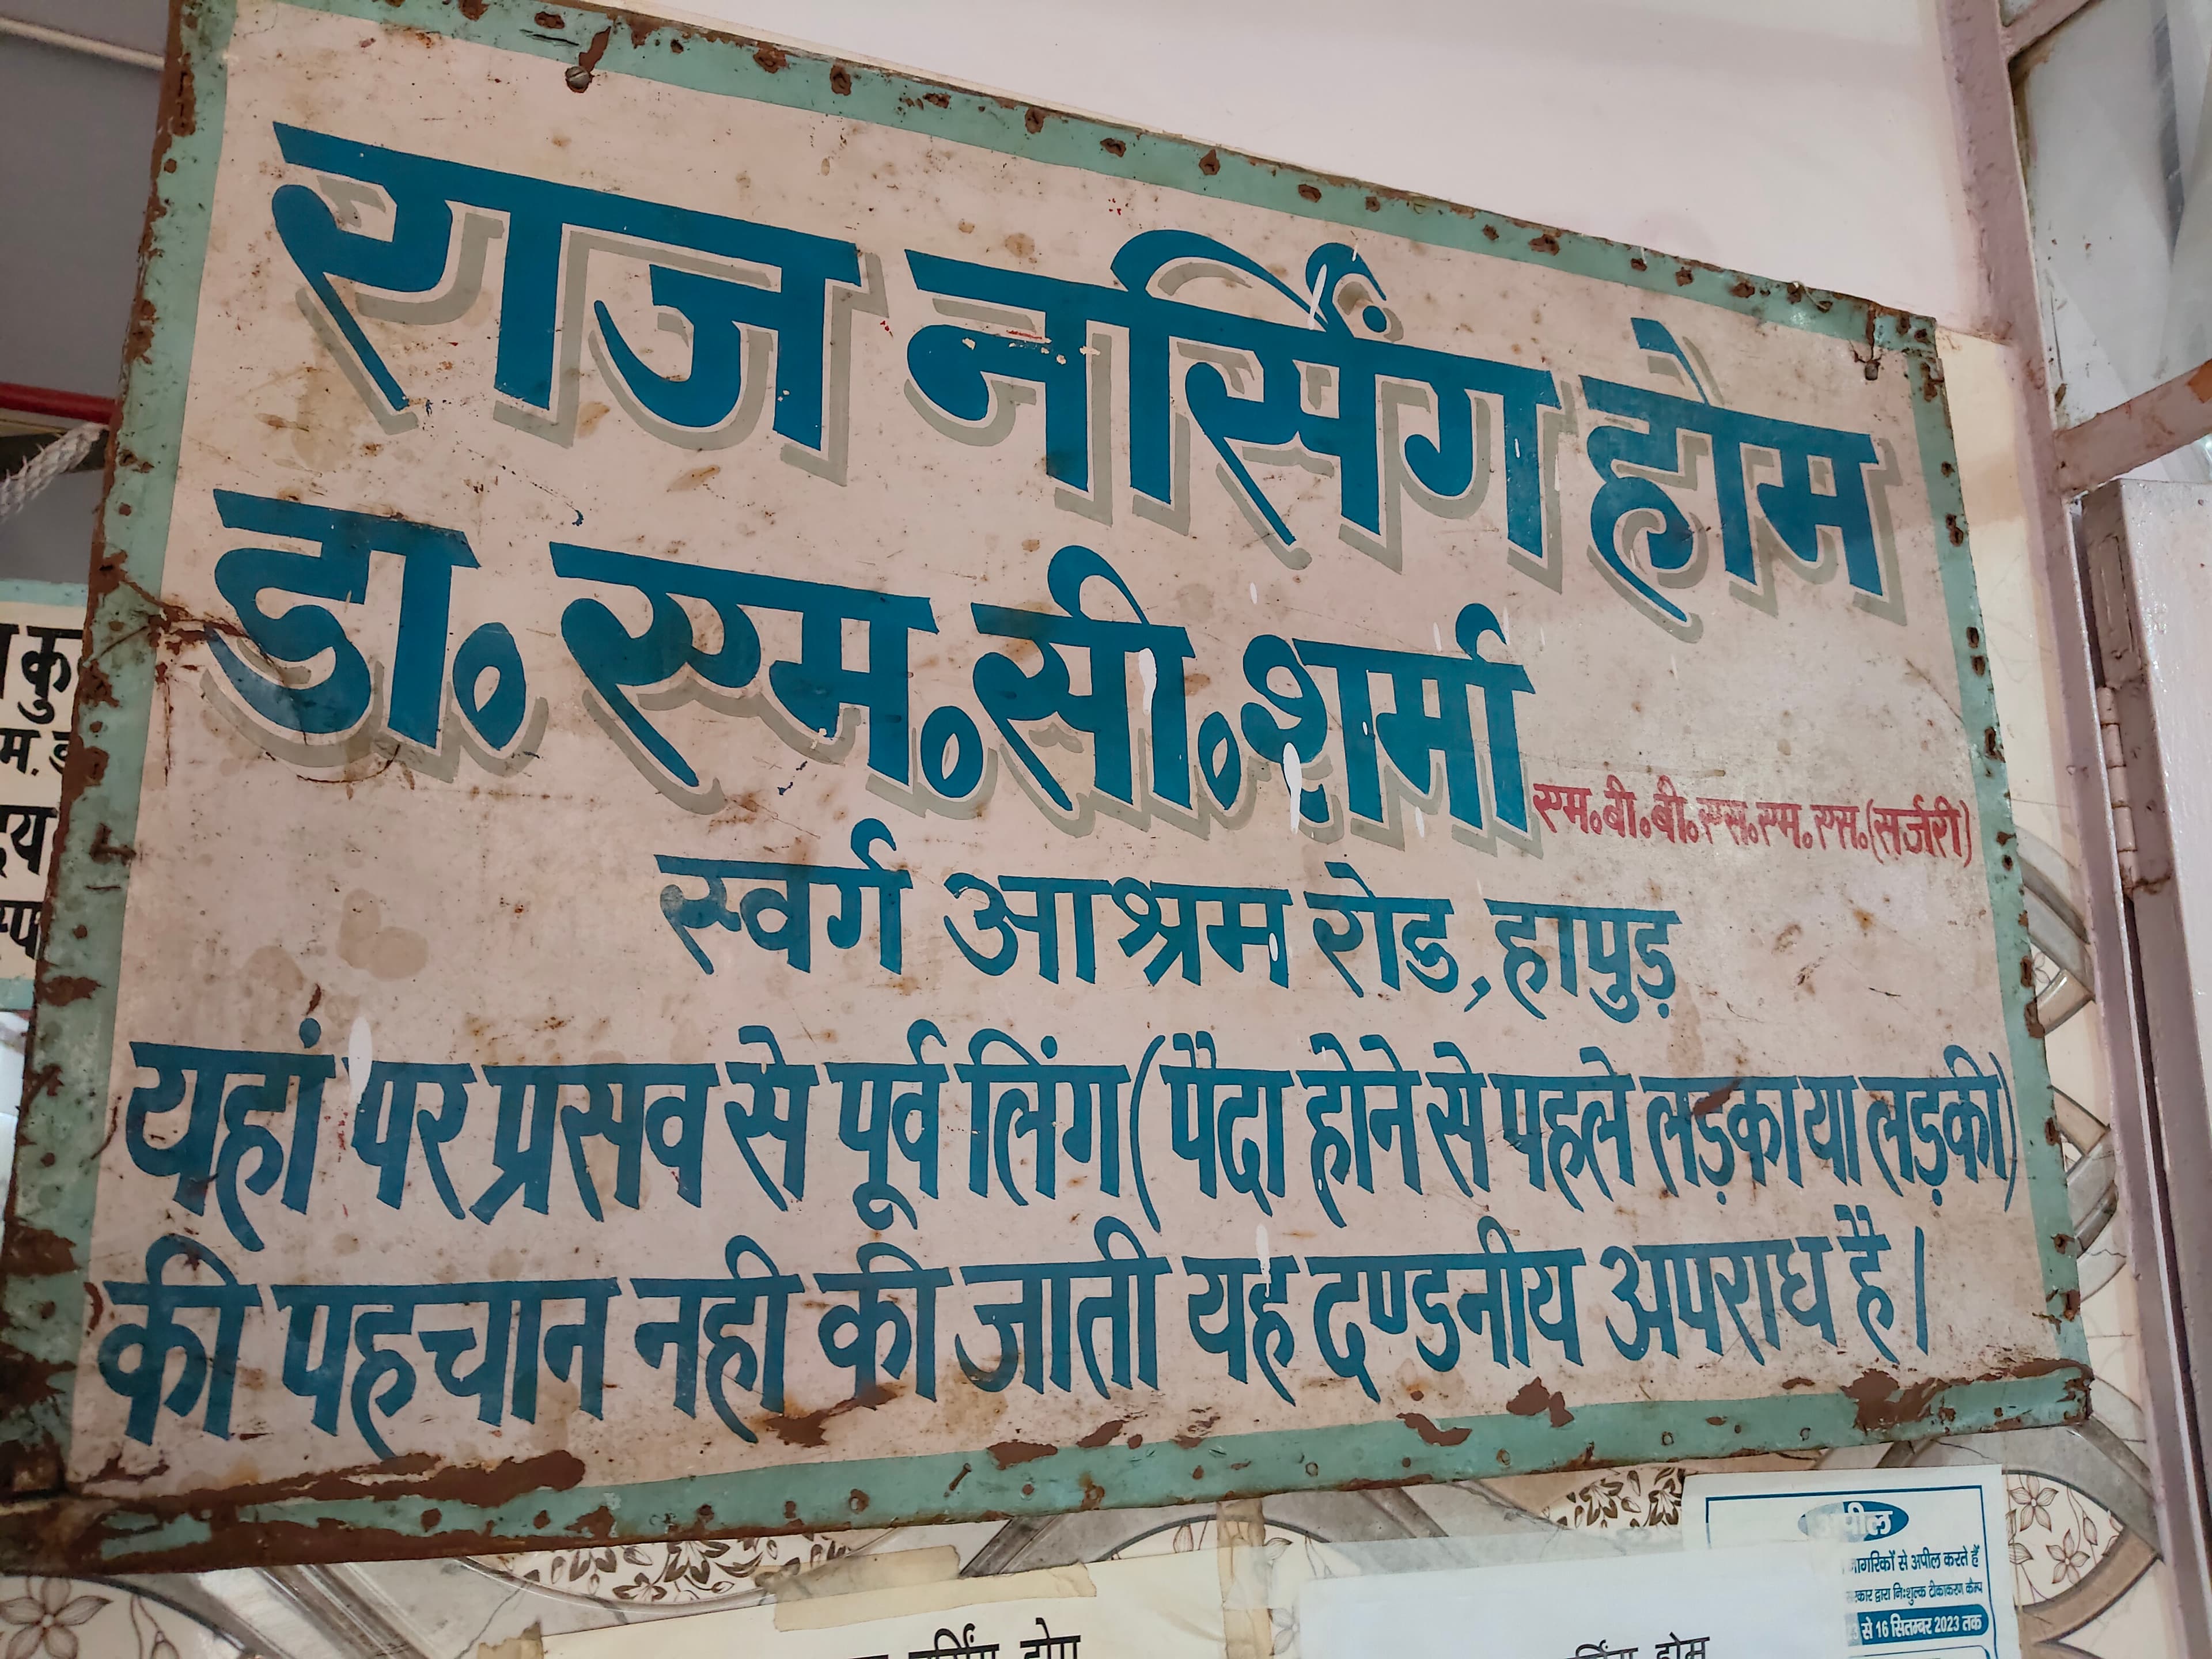 राज नर्सिंग होम
डा॰ एम॰सी॰शर्मा
एम॰बी॰बी॰एस॰एम॰एस॰(सर्जरी)
स्वर्ग आश्रम रोड,हापुड़
यहां पर प्रसव से पूर्व लिंग(पैदा होने से पहले लड़का या लड़की)
की पहचान नही की जाती यह दण्डनीय अपराध है।
अपील
से अपील करते हैं
द्वारा निःशुल्क टीकाकरण कैम्प
से 16 सितम्बर 2023 तक
नर्सिंग होम
होम